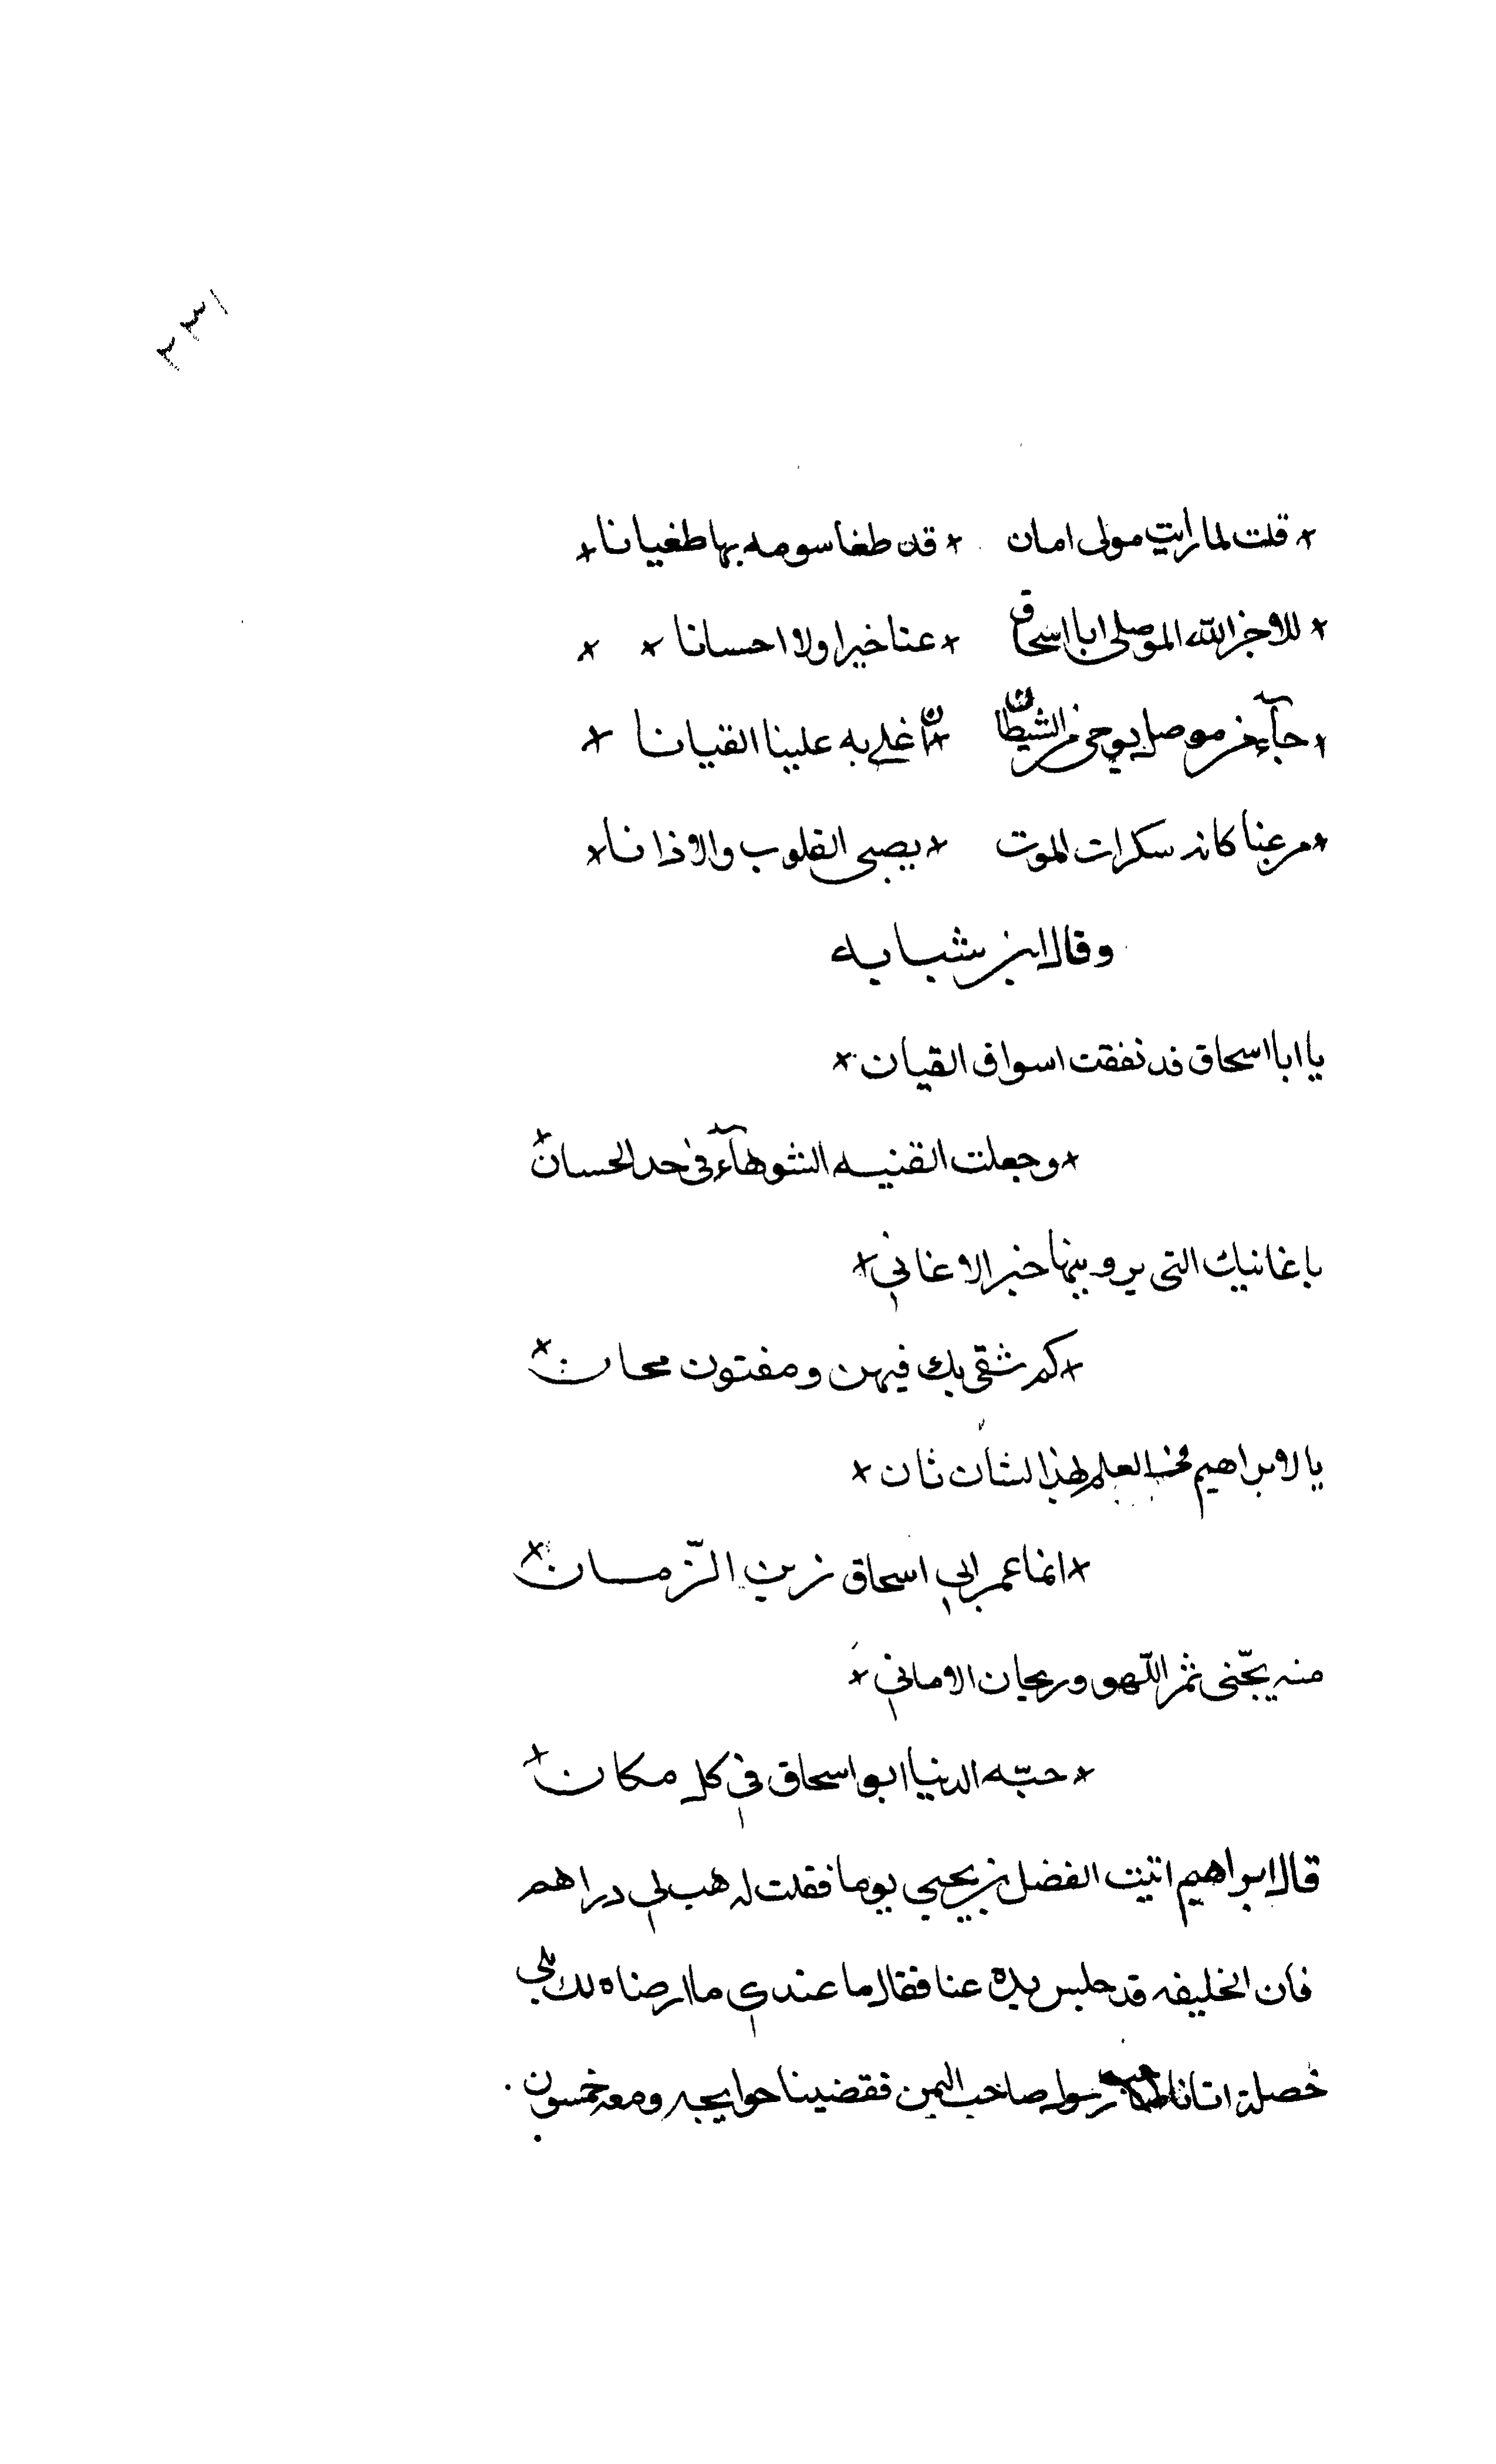 ٢٣١
× قلت لما رايت مولى امان × قد طغا سومه بها طغيانا ×
× للا جز الله الموصلى ابا اسحاق × عنا خيرا ولا احسانا × ×
× جآء من موصل يوحى من الشيطان × اغلى به علينا القيانا ×
× من غنا كانه سكرات الموت × يصبى القلوب والاذانا ×
وقال ابن شبابه
يا ابا اسحاق قد نفقت اسواق القيان ×
× وجعلت القنيه الشوهآء فى حد الحسان ×
باغانيك التى يروينها خير الاغاني ×
× كم شقى بك فيهن ومفتون محان ×
يا لابراهيم فى العلم لهذا الشأن ثان ×
× انما عمر ابي اسحاق زين الزّمان ×
منه يجّنى ثمر اللّهو وريحان الاماني ×
× حبّه الدنيا ابو اسحاق في كل مكان ×
قال ابراهيم اتيت الفضل بن يحيى يوما فقلت له هب لي دراهم
فأن الخليفه قد حبس يده عنا فقال ما عندي ما ارضاه لك بلي
خصلة اتانا رسول صاحب اليمن فقضينا حوايجه ومعه خمسون